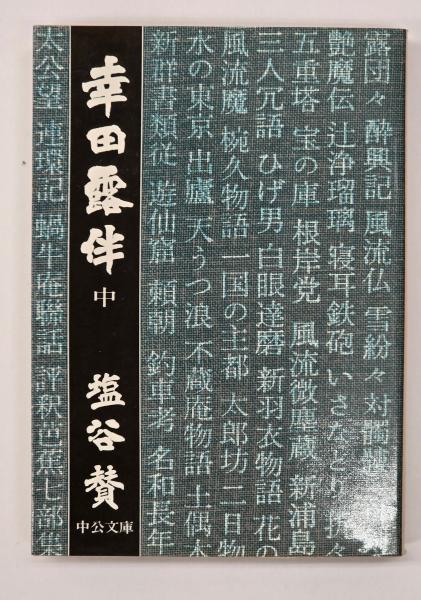 露団々 酔興記 風流仏 雪紛々 対髑髏
艶魔伝 辻浄瑠璃 寝耳鉄砲 いさなとり
五重塔 宝の庫 根岸党 風流微塵蔵 新浦島
三人冗語 ひげ男 白眼達磨 新羽衣物語 花の
風流魔 椀久物語 一国の主都 太郎坊 二日物
水の東京 出廬 天うつ浪 不蔵庵物語 土偶木
新群書類従 遊仙窟 頼朝 釣車考 名和長年
幸田露伴 中
塩谷賛
中公文庫
太公望 連環記 蝸牛庵聯話 評釈芭蕉七部集